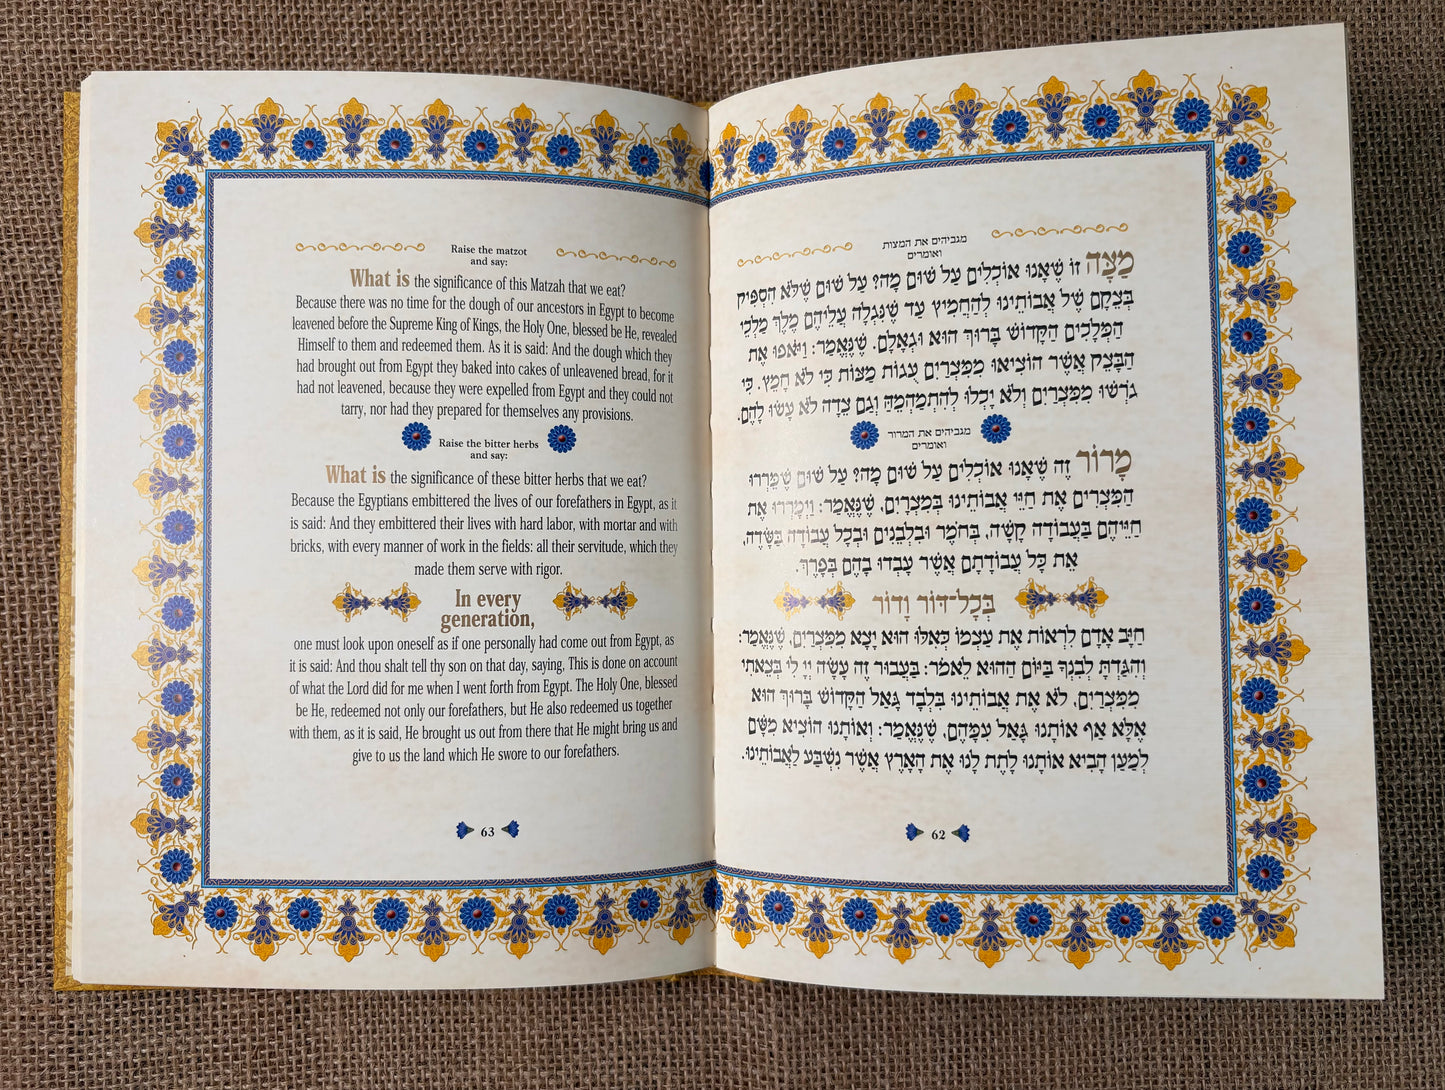 Raise the matzot
and say:
What is the significance of this Matzah that we eat?
Because there was no time for the dough of our ancestors in Egypt to become
leavened before the Supreme King of Kings, the Holy One, blessed be He, revealed
Himself to them and redeemed them. As it is said: And the dough which they
had brought out from Egypt they baked into cakes of unleavened bread, for it
had not leavened, because they were expelled from Egypt and they could not
tarry, nor had they prepared for themselves any provisions.
Raise the bitter herbs
and say:
What is the significance of these bitter herbs that we eat?
Because the Egyptians embittered the lives of our forefathers in Egypt, as it
is said: And they embittered their lives with hard labor, with mortar and with
bricks, with every manner of work in the fields: all their servitude, which they
made them serve with rigor.
In every
generation,
one must look upon oneself as if one personally had come out from Egypt, as
it is said: And thou shalt tell thy son on that day, saying, This is done on account
of what the Lord did for me when I went forth from Egypt. The Holy One, blessed
be He, redeemed not only our forefathers, but He also redeemed us together
with them, as it is said, He brought us out from there that He might bring us and
give to us the land which He swore to our forefathers.
63
מגביהים את המצות
ואומרים
מַצָּה זוֹ שֶׁאָנוּ אוֹכְלִים עַל שׁוּם מָה? עַל שׁוּם שֶׁלֹּא הִסְפִּיק
בְּצֵקָם שֶׁל אֲבוֹתֵינוּ לְהַחֲמִיץ עַד שֶׁנִּגְלָה עֲלֵיהֶם מֶלֶךְ מַלְכֵי
הַמְּלָכִים הַקָּדוֹשׁ בָּרוּךְ הוּא וּגְאָלָם. שֶׁנֶּאֱמַר: וַיֹּאפוּ אֶת
הַבָּצֵק אֲשֶׁר הוֹצִיאוּ מִמִּצְרַיִם עֻגוֹת מַצּוֹת כִּי לֹא חָמֵץ. כִּי
גֹרְשׁוּ מִמִּצְרַיִם וְלֹא יָכְלוּ לְהִתְמַהְמֵהַּ וְגַם צֵדָה לֹא עָשׂוּ לָהֶם.
מגביהים את המרור
ואומרים
מָרוֹר זֶה שֶׁאָנוּ אוֹכְלִים עַל שׁוּם מָה? עַל שׁוּם שֶׁמֵּרְרוּ
הַמִּצְרִים אֶת חַיֵּי אֲבוֹתֵינוּ בְּמִצְרַיִם, שֶׁנֶּאֱמַר: וַיְמָרְרוּ אֶת
חַיֵּיהֶם בַּעֲבוֹדָה קָשָׁה, בְּחֹמֶר וּבִלְבֵנִים וּבְכָל עֲבוֹדָה בַּשָּׂדֶה,
אֵת כָּל עֲבוֹדָתָם אֲשֶׁר עָבְדוּ בָהֶם בְּפָרֶךְ.
בְּכָל־דּוֹר וָדוֹר
חַיָּב אָדָם לִרְאוֹת אֶת עַצְמוֹ כְּאִלּוּ הוּא יָצָא מִמִּצְרַיִם, שֶׁנֶּאֱמַר:
וְהִגַּדְתָּ לְבִנְךָ בַּיּוֹם הַהוּא לֵאמֹר: בַּעֲבוּר זֶה עָשָׂה יְיָ לִי בְּצֵאתִי
מִמִּצְרַיִם, לֹא אֶת אֲבוֹתֵינוּ בִּלְבָד גָּאַל הַקָּדוֹשׁ בָּרוּךְ הוּא
אֶלָּא אַף אוֹתָנוּ גָּאַל עִמָּהֶם, שֶׁנֶּאֱמַר: וְאוֹתָנוּ הוֹצִיא מִשָּׁם
לְמַעַן הָבִיא אוֹתָנוּ לָתֶת לָנוּ אֶת הָאָרֶץ אֲשֶׁר נִשְׁבַּע לַאֲבוֹתֵינוּ.
62